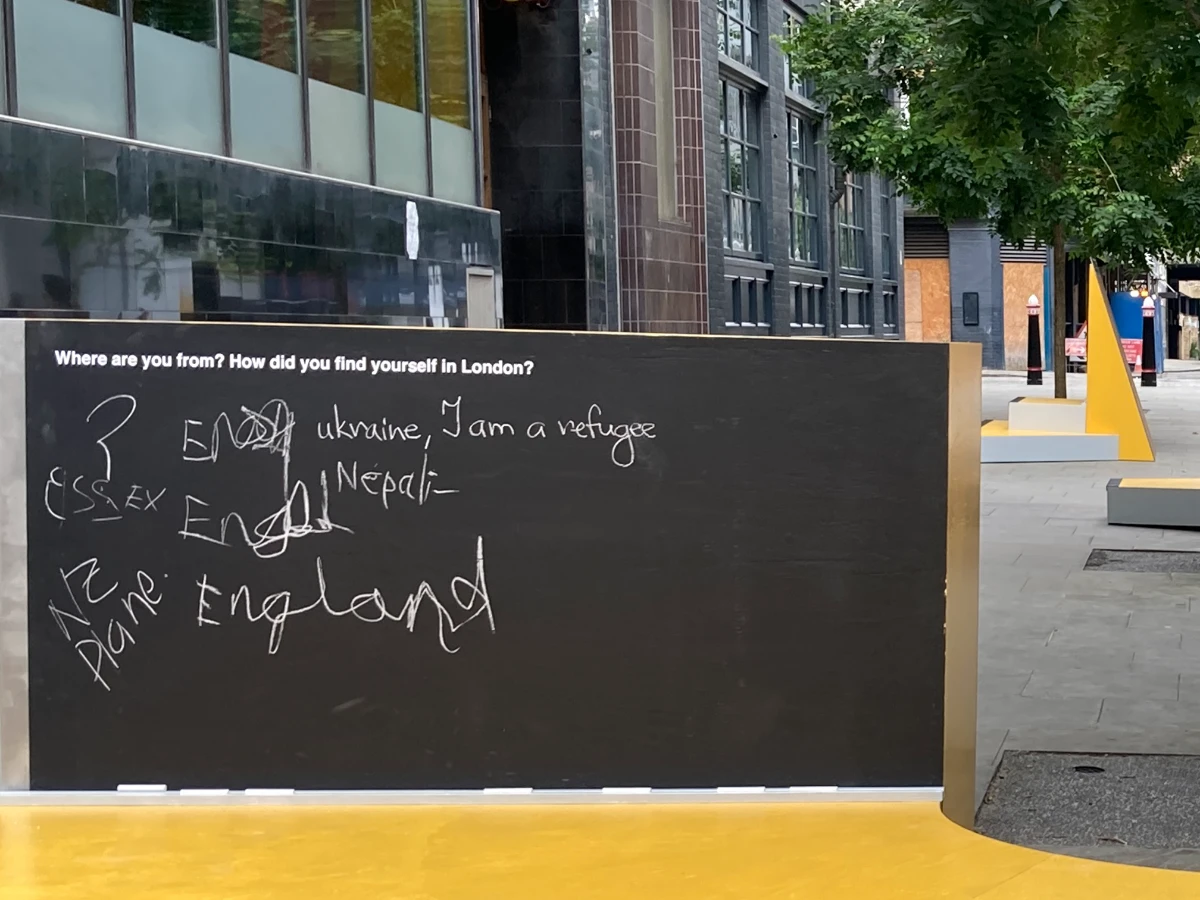 Where are you from? How did you find yourself in London?
?
ukraine, I am a refugee
Nepali
ESSEX
England
NZ
Plane.